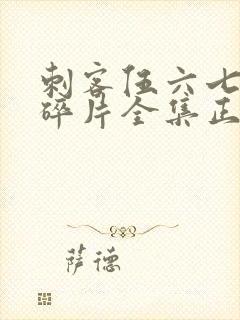 刺客伍六七
碎片全集正
萨德